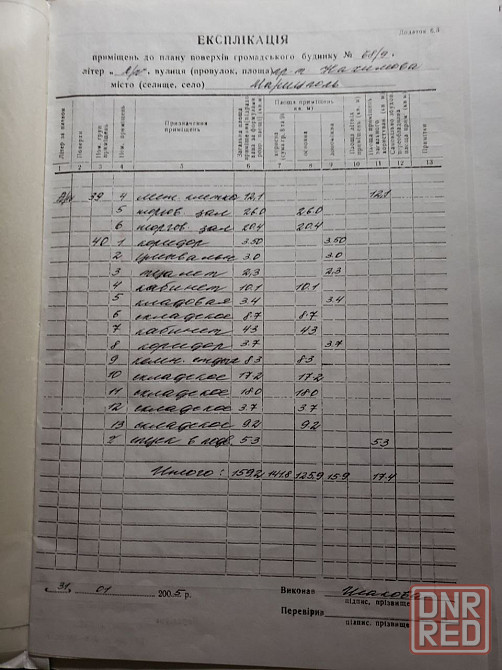 Додаток 6.4
ЕКСПЛІКАЦІЯ
приміщень до плану поверхів громадського будинку № 68/9.
літер „ А/р", вулиця (провулок, площа) пр-т Нахимова
місто (селище, село) Мариуполь
Літер за планом Поверхи Ном. групи приміщень Ном. приміщень Призначення приміщень
Площа приміщень (кв. м)
основна допоміжна
Примітки
1 2 3 4 5 6 7 8 9 10 11 12 13
А/р 39 4 лест. клетка 12,1 12,1
5 торгов. зал 26.0 26.0
6 торгов. зал 20.4 20.4
40 1 коридор 3.50 3.50
2 умывальн 3.0 3.0
3 туалет 2,3 2,3
4 кабинет 10.1 10.1
5 кладовая 3.4 3.4
6 складское 8.7 8.7
7 кабинет 43 43
8 коридор 3.7 3.7
9 комн. отдыха 8.3 8.3
10 складское 17.2 17.2
11 складское 18.0 18.0
12 складское 3.7 3.7
13 складское 9.2 9.2
спуск в подв. 5.3 5.3
Итого: 159.2 141.8 125.9 15.9 17.4
„ 31 " 01 2005 р.
Виконав
підпис, прізвище
Перевірив
підпис, прізвище
DNR
RED